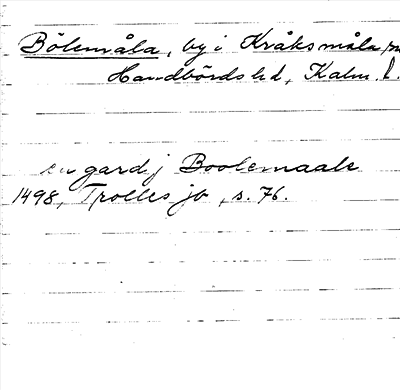 Bölemåla, by i Kråksmåla sn
Handbörds hd, Kalm. l.
en gard j Boolemaale
1498, Trolles jb, s. 76.